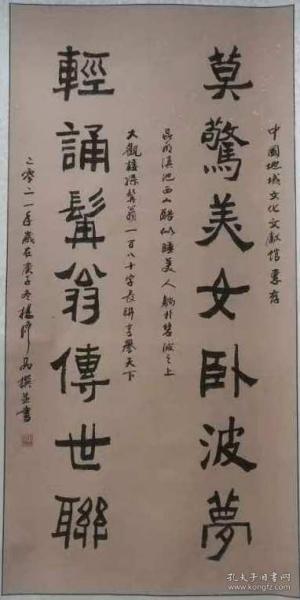 中國地域文化文獻館 惠存
莫驚美女卧波夢
昆明滇池西山酷似睡美人躺於碧波之上
大觀樓孫髯翁一百八十字長聯享譽天下
輕誦髯翁傳世聯
二零二一年歲在庚子冬楊師撰並書
孔夫子旧书网